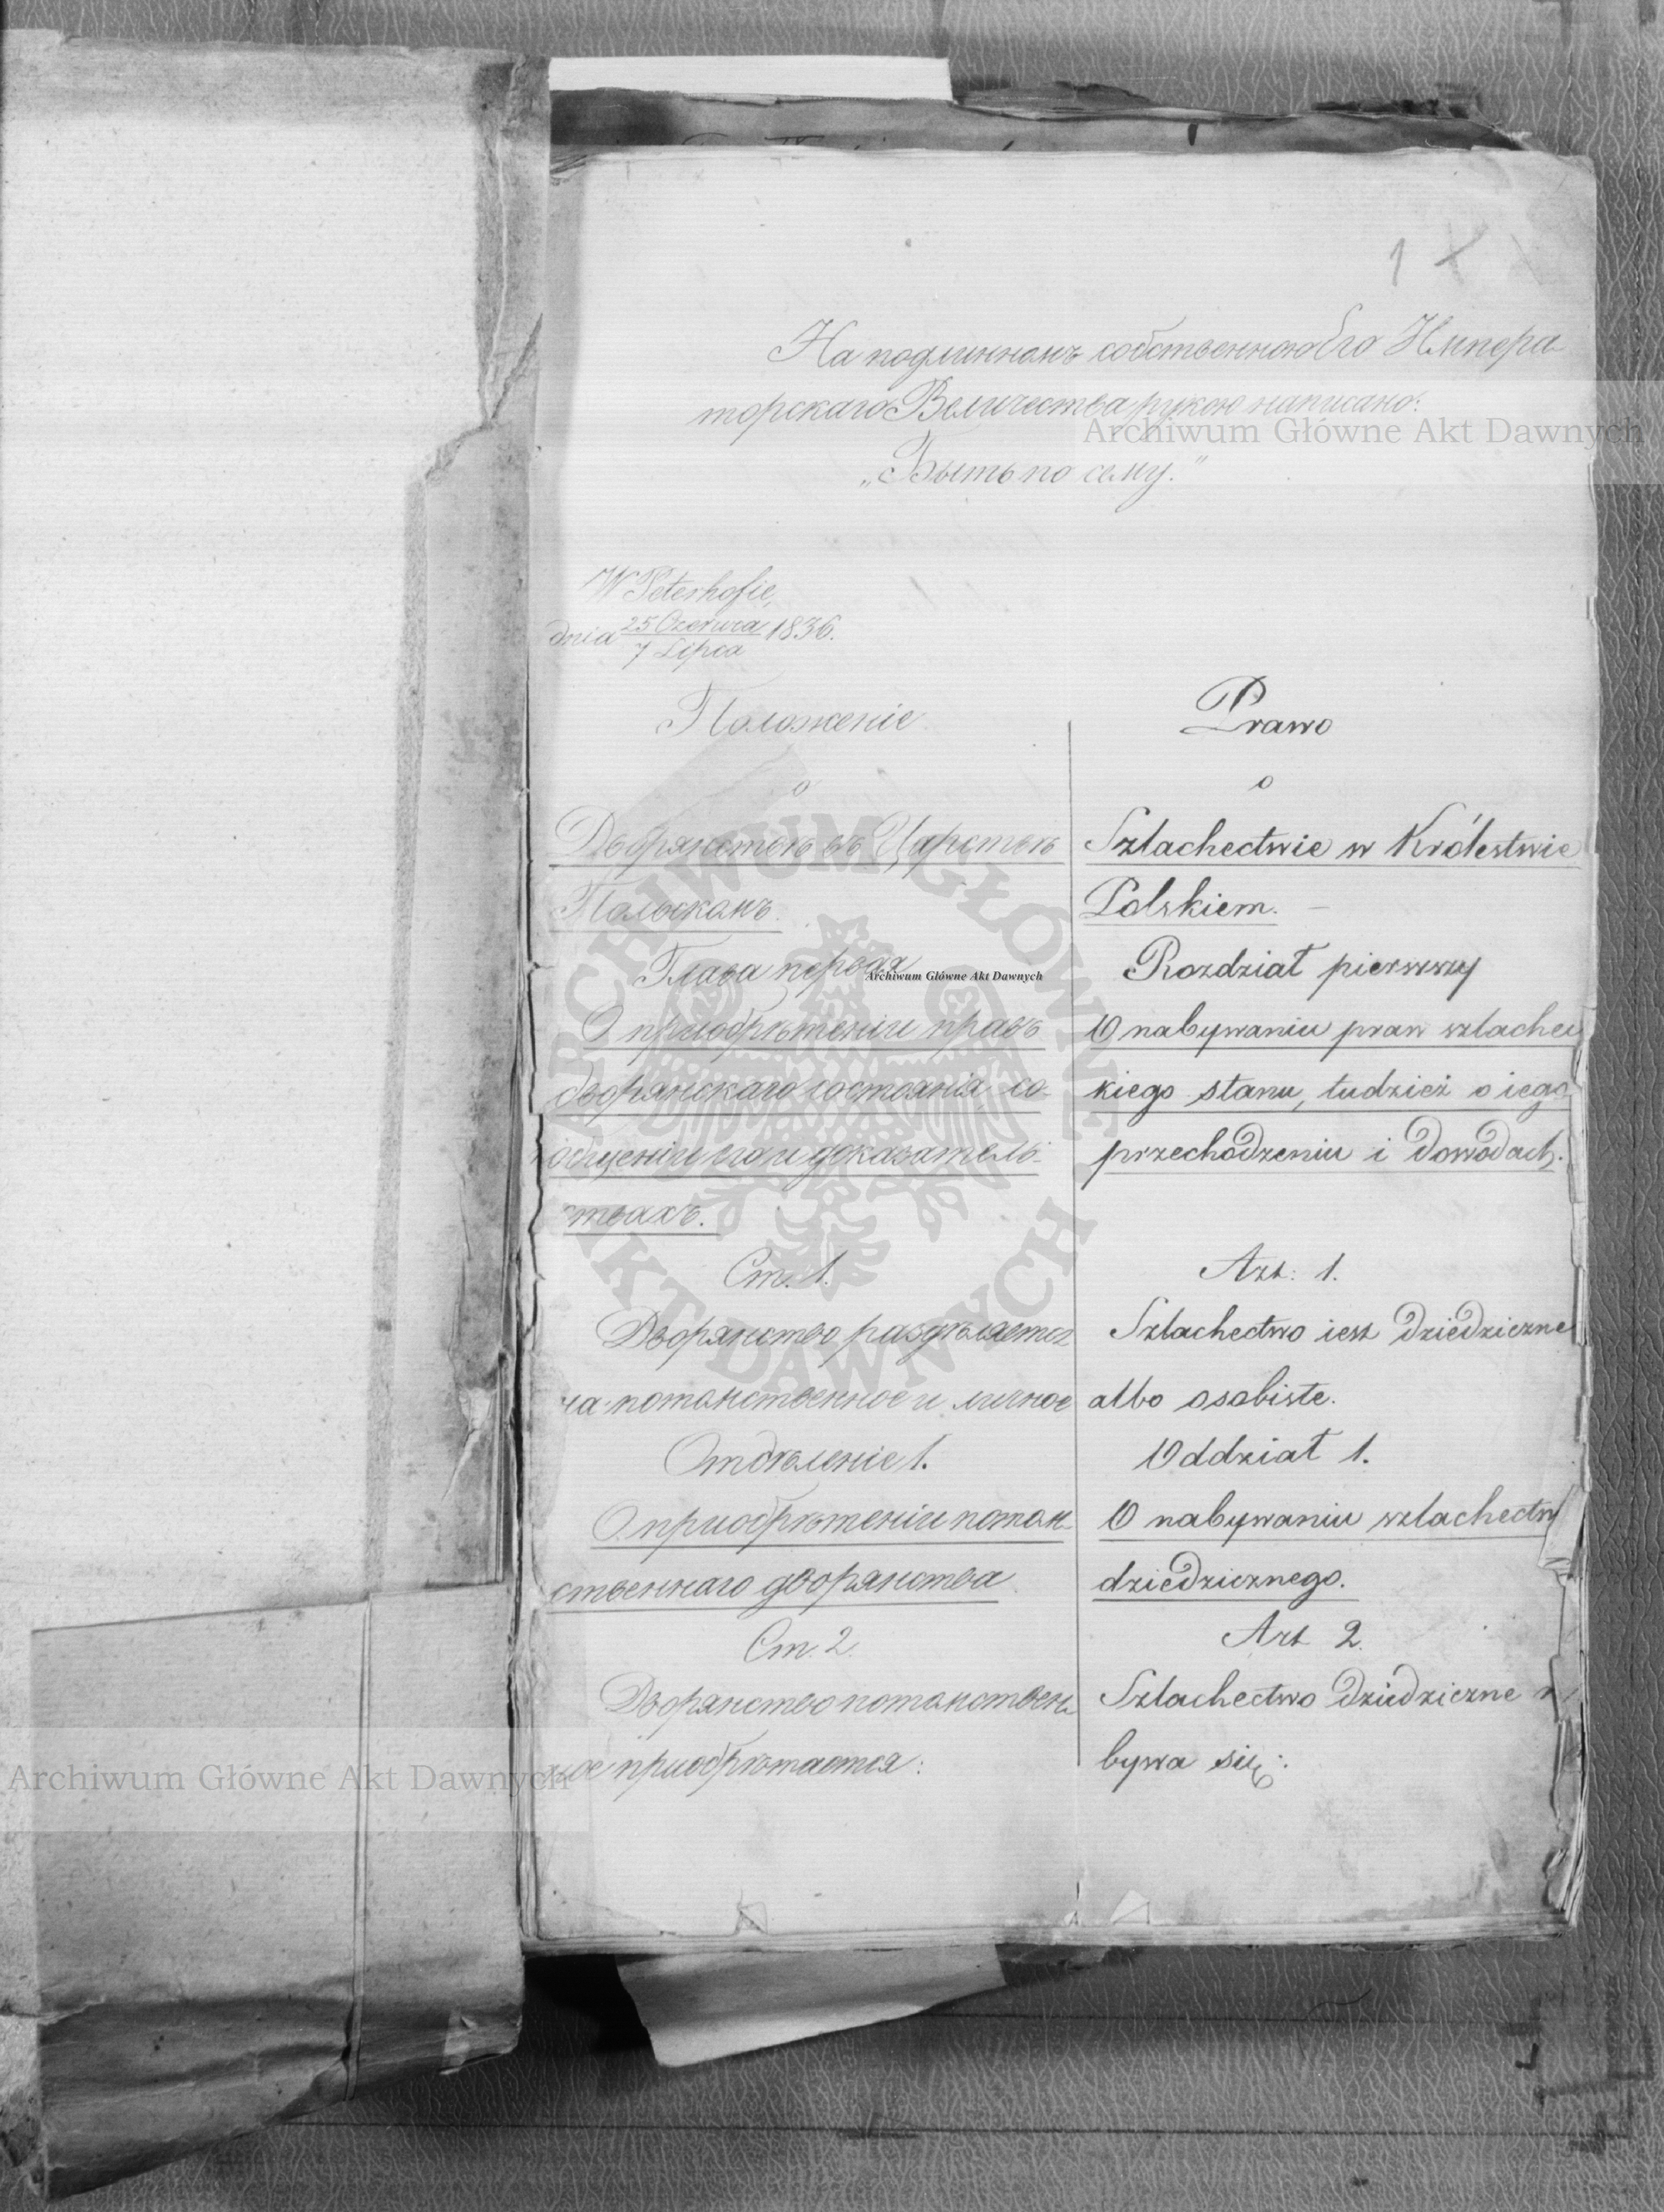 1
На подлинномъ собственною Его Импера
торскаго Величества рукою написано:
„Быть по сему."
W Peterhofie,
dnia 25 Czerwca / 7 Lipca 1836.
Положеніе
о
Дворянствѣ въ Царствѣ
Польскомъ.
Глава первая
О пріобрѣтеніи правъ
дворянскаго состоянія, со-
общеніи его и доказатель-
ствахъ.
Ст. 1.
Дворянство раздѣляется
на потомственное и личное
Отдѣленіе 1.
О пріобрѣтеніи потом-
ственнаго дворянства
Ст. 2.
Дворянство потомствен-
ное пріобрѣтается:
Prawo
o
Szlachectwie w Królestwie
Polskiem. –
Rozdział pierwszy
O nabywaniu praw szlachec
kiego stanu, tudzież o iego
przechodzeniu i dowodach.
Art: 1.
Szlachectwo iest dziedziczne
albo osobiste.
Oddział 1.
O nabywaniu szlachectw
dziedzicznego.
Art 2.
Szlachectwo dziedziczne n
bywa się:
Archiwum Główne Akt Dawnych
Archiwum Główne Akt Dawnych
Archiwum Główne Akt Dawnych
ARCHIWUM GŁÓWNE
AKT DAWNYCH